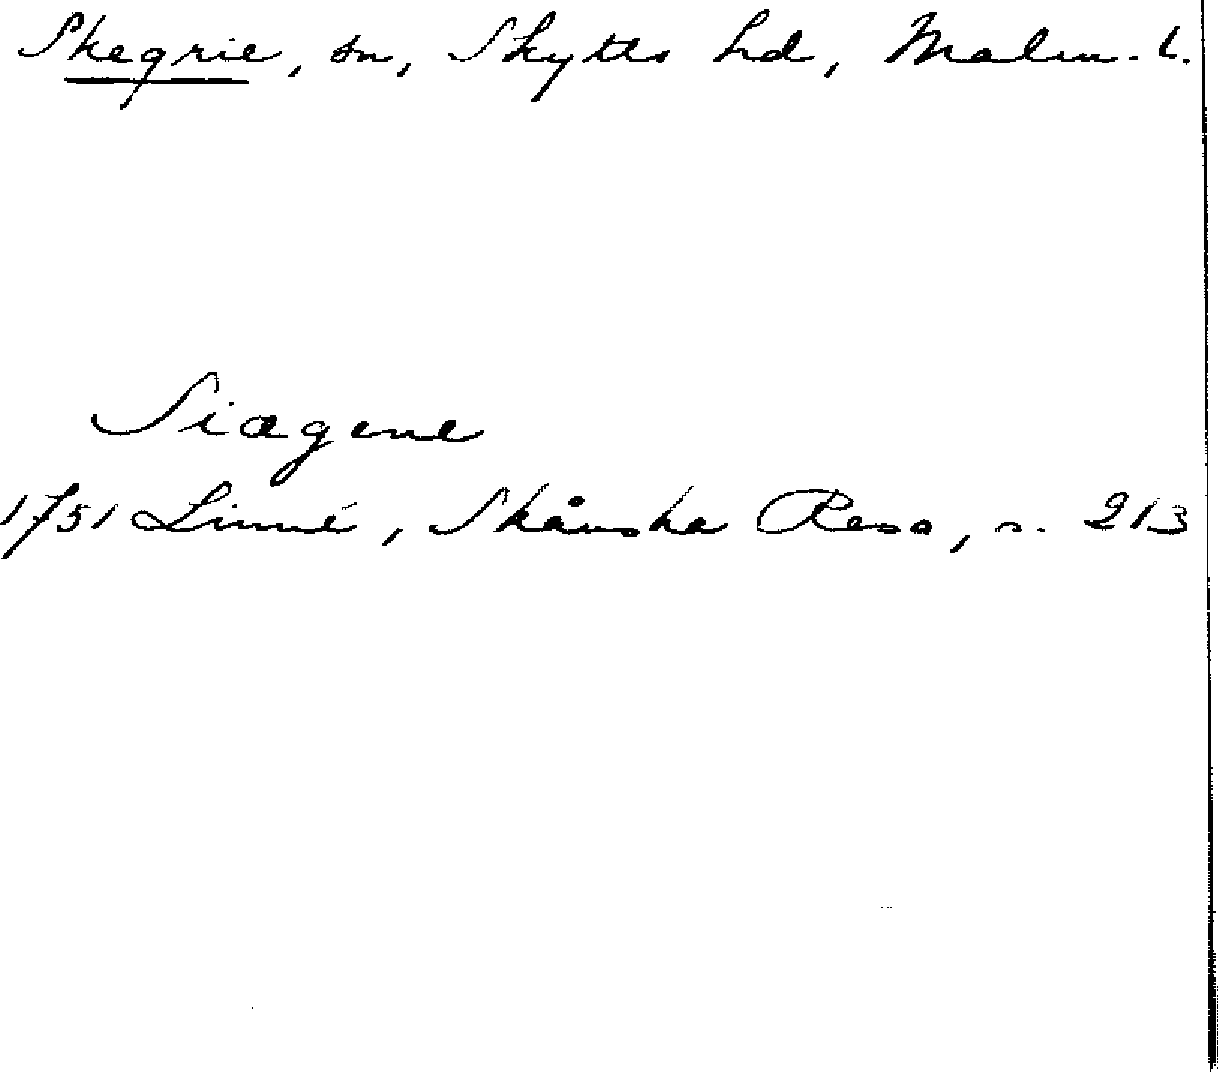 Skegrie, sn, Skytts hd, Malm. l.
Siægene
1751 Linné, Skånska Resa, s. 213